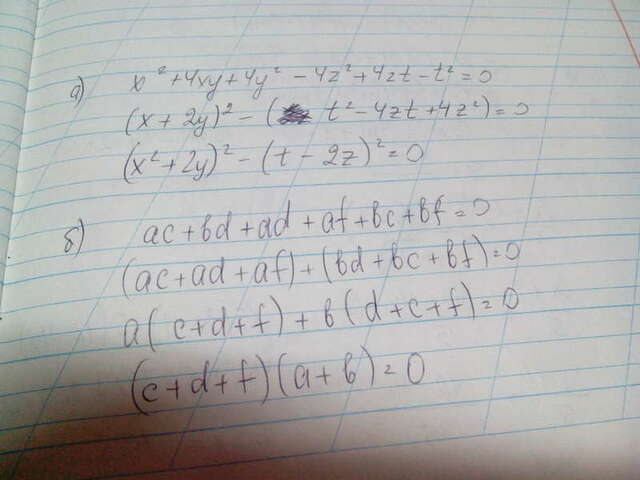 а) x² + 4xy + 4y² - 4z² + 4zt - t² = 0
(x + 2y)² - ( t² - 4zt + 4z²) = 0
(x² + 2y)² - (t - 2z)² = 0
б) ac + вd + ad + af + вc + вf = 0
(ac + ad + af) + (вd + вc + вf) = 0
a(c + d + f) + в(d + c + f) = 0
(c + d + f)(a + в) = 0